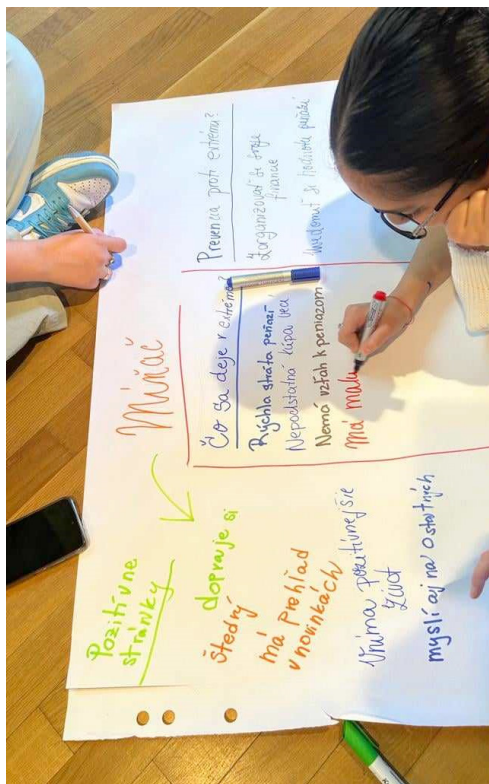 Míňač
Pozitívne
stránky
dopraje si
štedrý
má prehľad
v novinkách
Vníma pozitívnejšie
život
myslí aj na ostatných
Čo sa deje v extréme?
Rýchla strata peňazí
Nepodstatná kúpa vecí
Nemá vzťah k peniazom
má málo
Prevencia proti extrému?
Zorganizovať si svoje
financie
si hodnotu peňazí